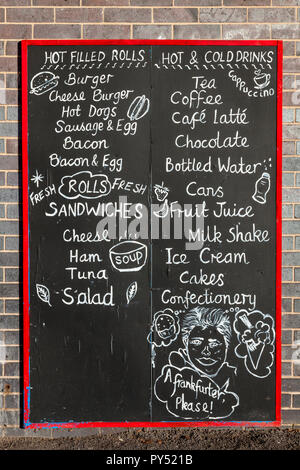 HOT FILLED ROLLS
Burger
Cheese Burger
Hot Dogs
Sausage & Egg
Bacon
Bacon & Egg
FRESH ROLLS FRESH
SANDWICHES
Cheese
Ham
soup
Tuna
Salad
HOT & COLD DRINKS
Tea
Cappuccino
Coffee
Café Latté
Chocolate
Bottled Water
Cans
Fruit Juice
Milk Shake
Ice Cream
Cakes
Confectionery
A frankfurter
Please!
alamy
Image ID: PY521B
www.alamy.com